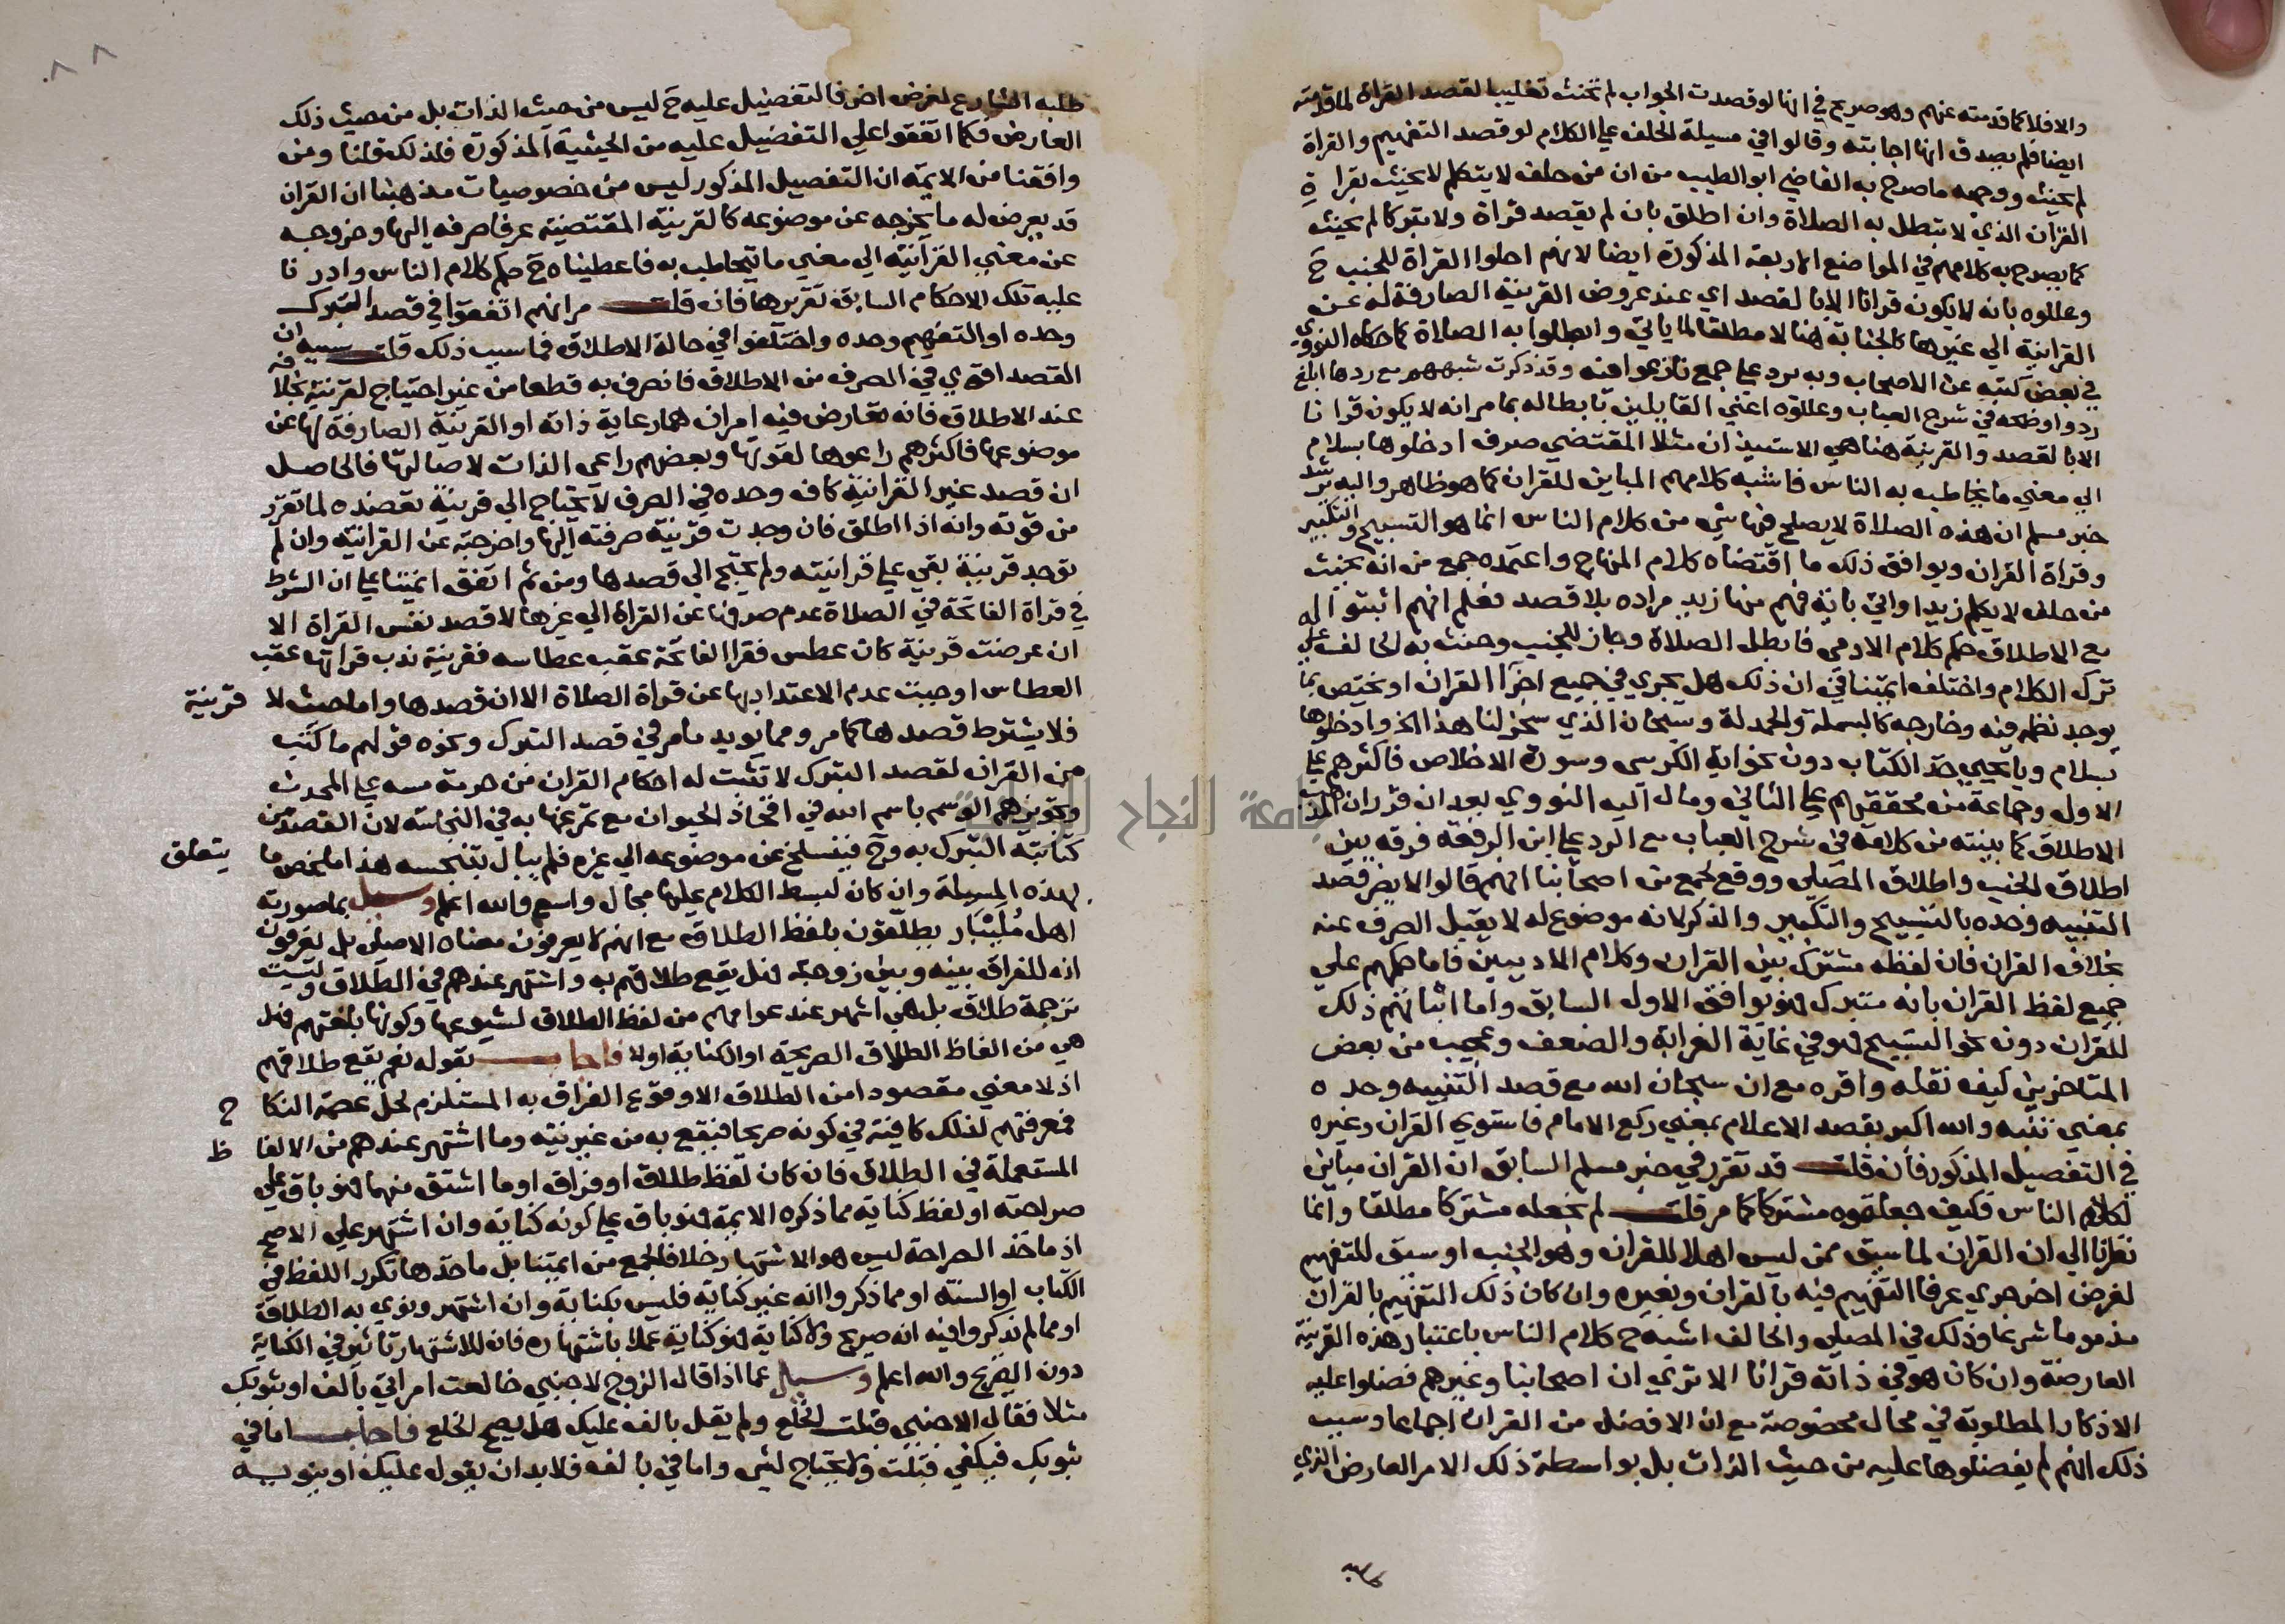 والا فلا كما قدمته عنهم وهو صريح في انها لو قصدت الجواب لم تحنث تغليبا لقصد القراة لما قدمته
ايضا فلم يصدق انها اجابته وقالوا في مسيلة الحلف علي الكلام لو قصد التفهيم والقراة
لم يحنث ووجهه ما صرح به القاضي ابو الطيب من ان من حلف لا يتكلم لا يحنث بقراة
القران الذي لا تبطل به الصلاة وان اطلق بان لم يقصد قراة ولا تبركا لم يحنث
كما يصرح به كلامهم في المواضع الاربعة المذكورة ايضا لانهم احلوا القراة للجنب ح
وعللوه بانه لا يكون قرانا الا بالقصد اي عند عروض القرينة الصارفة له عن
القرانية الي غيرها كالجنابة هنا لا مطلقا لما ياتي وابطلوا به الصلاة كما حكاه النووي
في بعض كتبه عن الاصحاب وبه يرد علي جمع نازعوا فيه وقد ذكرت شبههم مع ردها ابلغ
رد واوضحه في شرح العباب وعللوه اعني القايلين بابطاله بما مر انه لا يكون قرانا
الا بالقصد والقرينة هنا هي الاستيذان مثلا المقتضي صرف ادخلوها بسلام
الي معني ما يخاطب به الناس فاشبه كلامهم المباين للقران كما هو ظاهر واليه يرشد
خبر مسلم ان هذه الصلاة لا يصلح فيها شي من كلام الناس انما هو التسبيح والتكبير
وقراة القران ويوافق ذلك ما اقتضاه كلام المنهاج واعتمده جمع من انه يحنث
من حلف لا يكلم زيدا واتي باية فهم منها زيد مراده بلا قصد فعلم انهم اثبتوا له
مع الاطلاق حكم كلام الادمي فابطل الصلاة وجاز للجنب وحنث به الحالف علي
ترك الكلام واختلف ايمتنا في ان ذلك هل يجري في جميع اجزا القران او يختص بما
يوجد نظمه فيه وخارجه كالبسملة والحمدلة وسبحان الذي سخر لنا هذا الخ وادخلوها
بسلام ويا يحيي خذ الكتاب دون نحو اية الكرسي وسورة الاخلاص فاكثرهم علي
الاول وجماعة من محققيهم علي الثاني ومال اليه النووي بعد ان قرر ان المذهب
الاطلاق كما بينته من كلامه في شرح العباب مع الرد علي ابن الرفعة فرقه بين
اطلاق الجنب واطلاق المصلي ووقع لجمع من اصحابنا انهم قالوا لا يضر قصد
التنبيه وحده بالتسبيح والتكبير والذكر لانه موضوع له لا يقبل الصرف عنه
بخلاف القران فان لفظه مشترك بين القران وكلام الادميين فاما حكمهم علي
جميع لفظ القران بانه مشترك فهو يوافق الاول السابق واما اثباتهم ذلك
للقران دون نحو التسبيح فهو في غاية الغرابة والضعف وعجيب من بعض
المتاخرين كيف نقله واقره مع ان سبحان الله مع قصد التنبيه وحده
بمعني تنبه والله اكبر بقصد الاعلام بمعني ركع الامام فاستوي القران وغيره
في التفصيل المذكور فان قلت قد تقرر في خبر مسلم السابق ان القران مباين
لكلام الناس فكيف جعلتموه مشتركا كما مر قلت لم نجعله مشتركا مطلقا وانما
نظرنا الي ان القران لما سيق ممن ليس اهلا للقران وهو الجنب او سيق للتفهيم
لغرض اخر جري عرفا التفهيم فيه بالقران وبغيره وان كان ذلك التفهيم بالقران
مذموما شرعا وذلك في المصلي والحالف اشبه ح كلام الناس باعتبار هذه القرينة
العارضة وان كان هو في ذاته قرانا الا تري ان اصحابنا وغيرهم فضلوا عليه
الاذكار المطلوبة في محال مخصوصة مع ان الافضل من القران اجماعا وسبب
ذلك انهم لم يفضلوها عليه من حيث الذات بل بواسطة ذلك الامر العارض الذي
٨٨
طلبه الشارع لغرض اخر فالتفضيل عليه ح ليس من حيث الذات بل من حيث ذلك
العارض فكما اتفقوا علي التفضيل عليه من الحيثية المذكورة فلذلك قلنا ومن
وافقنا من الايمة ان التفصيل المذكور ليس من خصوصيات مذهبنا ان القران
قد يعرض له ما يخرجه عن موضوعه كالقرينة المقتضية عرفا صرفه اليها وخروجه
عن معني القرانية الي معني ما يتخاطب به فاعطيناه ح حكم كلام الناس وادرنا
عليه تلك الاحكام السابق تقريرها فان قلت مر انهم اتفقوا في قصد التبرك
وحده او التفهيم وحده واختلفوا في حالة الاطلاق فما سبب ذلك قلت سببه ان
القصد اقوي في الصرف من الاطلاق فانصرف به قطعا من غير احتياج لقرينة بخلافه
عند الاطلاق فانه تعارض فيه امران هما رعاية ذاته او القرينة الصارفة لها عن
موضوعها فاكثرهم راعوها لقوتها وبعضهم راعي الذات لاصالتها فالحاصل
ان قصد غير القرانية كاف وحده في الصرف لا يحتاج الي قرينة تعضده لما تقرر
من قوته وانه اذا اطلق فان وجدت قرينة صرفته اليها واخرجته عن القرانية وان لم
توجد قرينة بقي علي قرانيته ولم يحتج الي قصدها ومن ثم اتفق ايمتنا علي ان الشرط
في قراة الفاتحة في الصلاة عدم صرفها عن القراة الي غيرها لا قصد نفس القراة الا
ان عرضت قرينة كان عطس فقرا الفاتحة عقب عطاسه فقرينة ندب قراتها عقب
العطاس اوجبت عدم الاعتداد بها عن قراة الصلاة الا ان قصدها واما حيث لا قرينة
فلا يشترط قصدها كما مر ومما يويد ما مر في قصد التبرك ونحوه قولهم ما كتب
من القران لقصد التبرك لا تثبت له احكام القران من حرمة مسه علي المحدث
وتجويزهم الوسم باسم الله في افخاذ الحيوان مع تمرغها به في النجاسة لان القصد من
كتابته التبرك به وح فينسلخ عن موضوعه الي غيره فلم يبال بتنجسه هذا ملخص ما يتعلق
بهذه المسيلة وان كان لبسط الكلام عليها مجال واسع والله اعلم وسيل بما صورته
اهل مليبار يطلقون بلفظ الطلاق مع انهم لا يعرفون معناه الاصلي بل يعرفون
انه للفراق بينه وبين زوجته فهل يقع طلاقهم به واشتهر عندهم في الطلاق وليست
ترجمة طلاق بل هي اشهر عند عوامهم من لفظ الطلاق لشيوعها وكونها بلغتهم فهل
هي من الفاظ الطلاق الصريحة او الكناية اولا فاجاب بقوله نعم يقع طلاقهم
اذ لا معني مقصودا من الطلاق الا وقوع الفراق به المستلزم لحل عصمة النكاح
فمعرفتهم لذلك كافية في كونه صريحا فيقع به من غير نيته وما اشتهر عندهم من الالفاظ
المستعملة في الطلاق فان كان لفظ طلاق او فراق او ما اشتق منهما فهو باق علي
صراحته او لفظ كناية مما ذكره الايمة فهو باق علي كونه كناية وان اشتهر علي الاصح
اذ ماخذ الصراحة ليس هو الاشتهار خلافا لجمع من ايمتنا بل ماخذها تكرر اللفظ في
الكتاب او السنة او مما ذكروا انه غير كناية فليس بكناية وان اشتهر ونوي به الطلاق
او مما لم يذكروا فيه انه صريح ولا كناية فهو كناية عملا باشتهاره فان للاشتهار تاثير في الكناية
دون الصريح والله اعلم وسيل عما اذا قال الزوج لاجنبي خالعت امراتي بالف او بثوبك
مثلا فقال الاجنبي قبلت الخلع ولم يقل بالف عليك هل يصح الخلع فاجاب اما في
بثوبك فيكفي قبلت ولا يحتاج لشي واما في بالف فلا بد ان يقول عليك او ينويه
جامعة النجاح